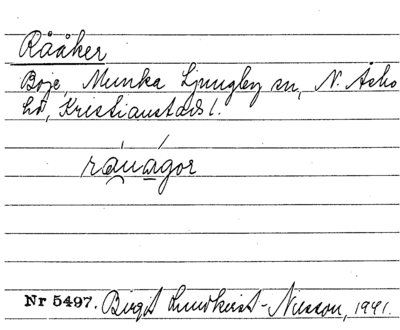 Rååker
Boje, Munka Ljungby sn, N. Åsbo
hd, Kristianstads l.
ráuágor
Nr 5497. Birgit Lundkvist-Nilsson, 1941.